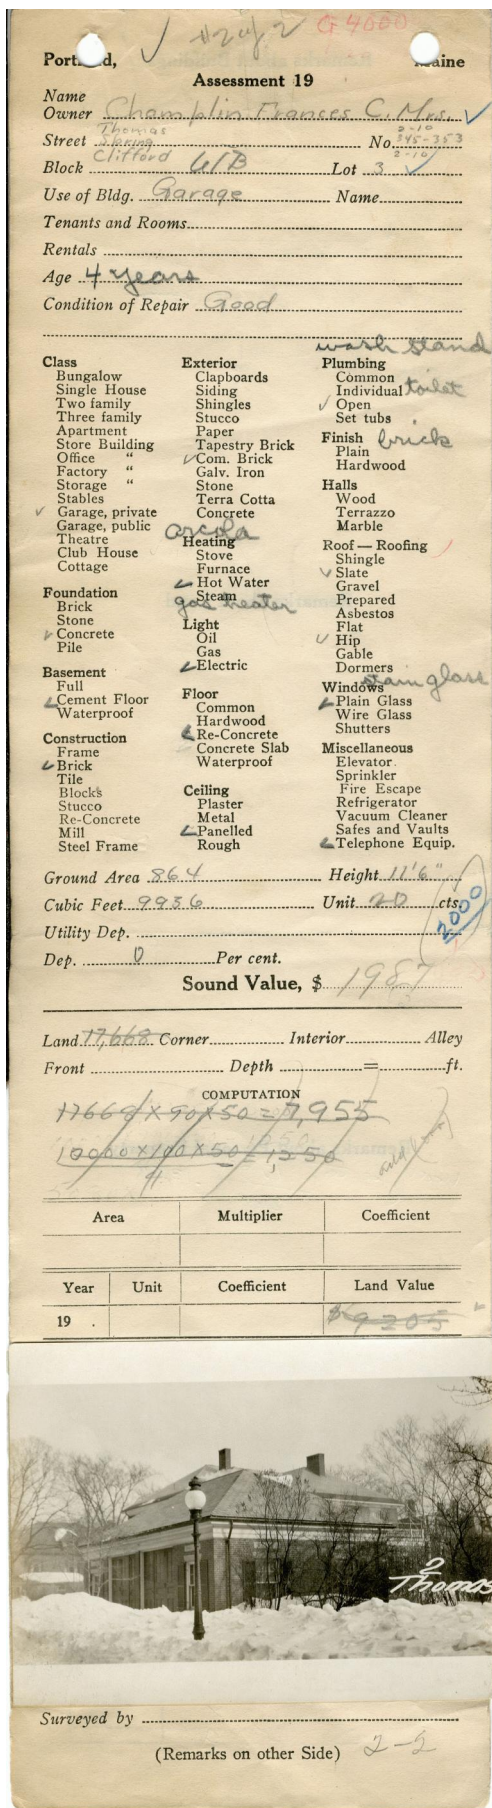 #2 of 2 G 4000
Portland, Maine
Assessment 19
Name
Owner Champlin Frances C. Mrs.
Thomas 2-10
Street Storing No. 345-353
Clifford 2-10
Block 61B Lot 3
Use of Bldg. Garage Name
Tenants and Rooms
Rentals
Age 4 years
Condition of Repair Good
wash stand
Class
Bungalow
Single House
Two family
Three family
Apartment
Store Building
Office "
Factory "
Storage "
Stables
Garage, private
Garage, public
Theatre
Club House
Cottage
Foundation
Brick
Stone
Concrete
Pile
Basement
Full
Cement Floor
Waterproof
Construction
Frame
Brick
Tile
Blocks
Stucco
Re-Concrete
Mill
Steel Frame
Exterior
Clapboards
Siding
Shingles
Stucco
Paper
Tapestry Brick
Com. Brick
Galv. Iron
Stone
Terra Cotta
Concrete
arcola
Heating
Stove
Furnace
Hot Water
Steam
gas heater
Light
Oil
Gas
Electric
Floor
Common
Hardwood
Re-Concrete
Concrete Slab
Waterproof
Ceiling
Plaster
Metal
Panelled
Rough
Plumbing
Common
Individual toilet
Open
Set tubs
Finish bricks
Plain
Hardwood
Halls
Wood
Terrazzo
Marble
Roof — Roofing
Shingle
Slate
Gravel
Prepared
Asbestos
Flat
Hip
Gable
Dormers
stain glass
Windows
Plain Glass
Wire Glass
Shutters
Miscellaneous
Elevator
Sprinkler
Fire Escape
Refrigerator
Vacuum Cleaner
Safes and Vaults
Telephone Equip.
Ground Area 864 Height 11'6"
Cubic Feet 9936 Unit 20 cts.
2000
Utility Dep.
Dep. 0 Per cent.
Sound Value, $ 1987
Land 17,668 Corner Interior Alley
Front Depth = ft.
COMPUTATION
17668 x 90 x 50 = 7,955
10000 x 100 x 50 = 1,250
Area Multiplier Coefficient
Year Unit Coefficient Land Value
19 . $9205
2
Thomas
Surveyed by
(Remarks on other Side) 2-2